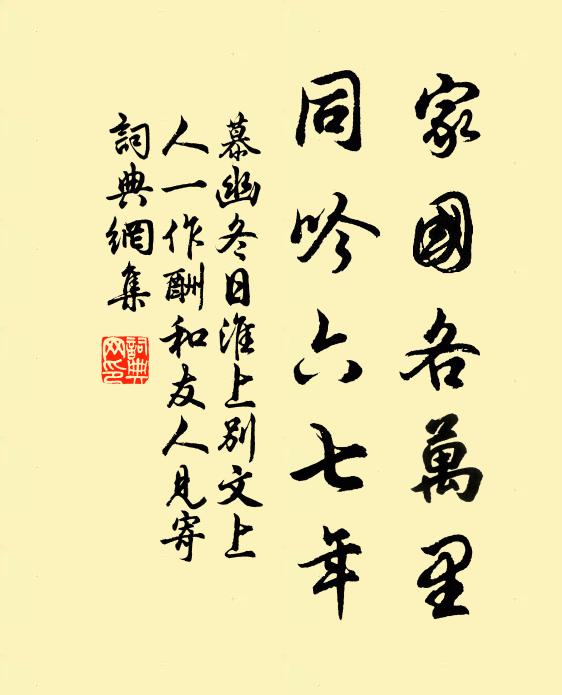 家國各萬里
同吟六七年
慕幽冬日淮上別文上
人一作酬和友人見寄
詞典網集
詞典
网印